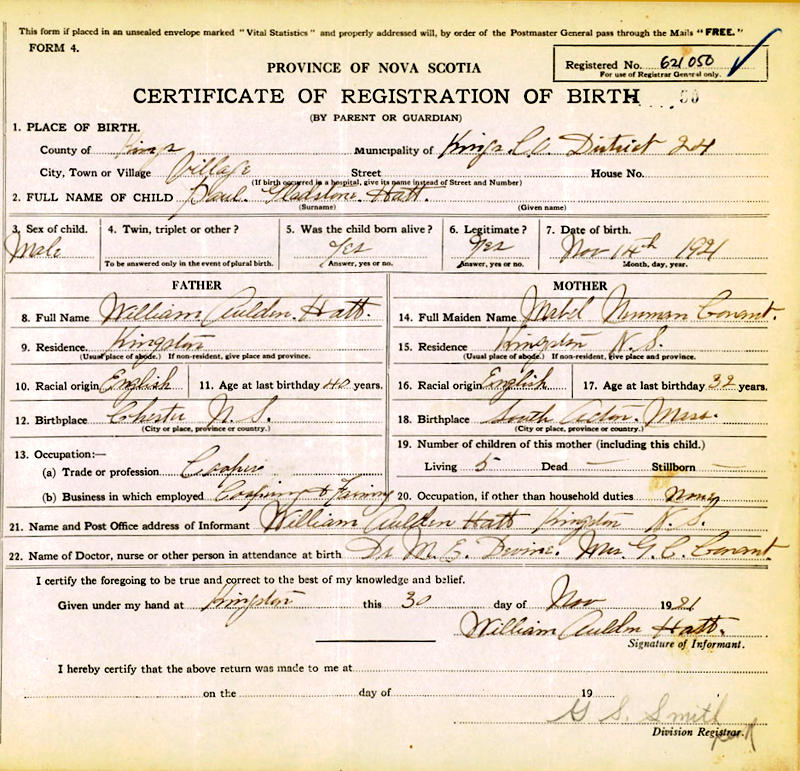 This form if placed in an unsealed envelope marked "Vital Statistics" and properly addressed will, by order of the Postmaster General pass through the Mails "FREE."
FORM 4.
Registered No. 621050
For use of Registrar General only.
PROVINCE OF NOVA SCOTIA
CERTIFICATE OF REGISTRATION OF BIRTH 50
(BY PARENT OR GUARDIAN)
1. PLACE OF BIRTH.
County of Kings Municipality of Kings Co. District 24
City, Town or Village Village Street House No.
(If birth occurred in a hospital, give its name instead of Street and Number)
2. FULL NAME OF CHILD Paul Gladstone Hatt.
(Surname) (Given name)
3. Sex of child. 4. Twin, triplet or other ? 5. Was the child born alive ? 6. Legitimate ? 7. Date of birth.
Male Yes Yes Nov 14th 1921
To be answered only in the event of plural birth. Answer, yes or no. Answer, yes or no. Month, day, year.
FATHER
8. Full Name William Aulden Hatt.
9. Residence. Kingston
(Usual place of abode.) If non-resident, give place and province.
10. Racial origin English 11. Age at last birthday 40 years.
12. Birthplace Chester N. S.
(City or place, province or country.)
13. Occupation:—
(a) Trade or profession Cooper
(b) Business in which employed Coopering & Farming
MOTHER
14. Full Maiden Name Mabel Newman Conant.
15. Residence Kingston N. S.
(Usual place of abode.) If non-resident, give place and province.
16. Racial origin English 17. Age at last birthday 39 years.
18. Birthplace South Acton, Mass.
(City or place, province or country.)
19. Number of children of this mother (including this child.)
Living 5 Dead — Stillborn —
20. Occupation, if other than household duties
21. Name and Post Office address of Informant William Aulden Hatt Kingston N. S.
22. Name of Doctor, nurse or other person in attendance at birth Dr M. E. Devine. Mrs G. C. Conant
I certify the foregoing to be true and correct to the best of my knowledge and belief.
Given under my hand at Kingston this 30 day of Nov 1921
William Aulden Hatt.
Signature of Informant.
I hereby certify that the above return was made to me at
on the day of 19
G S. Smith
Division Registrar.